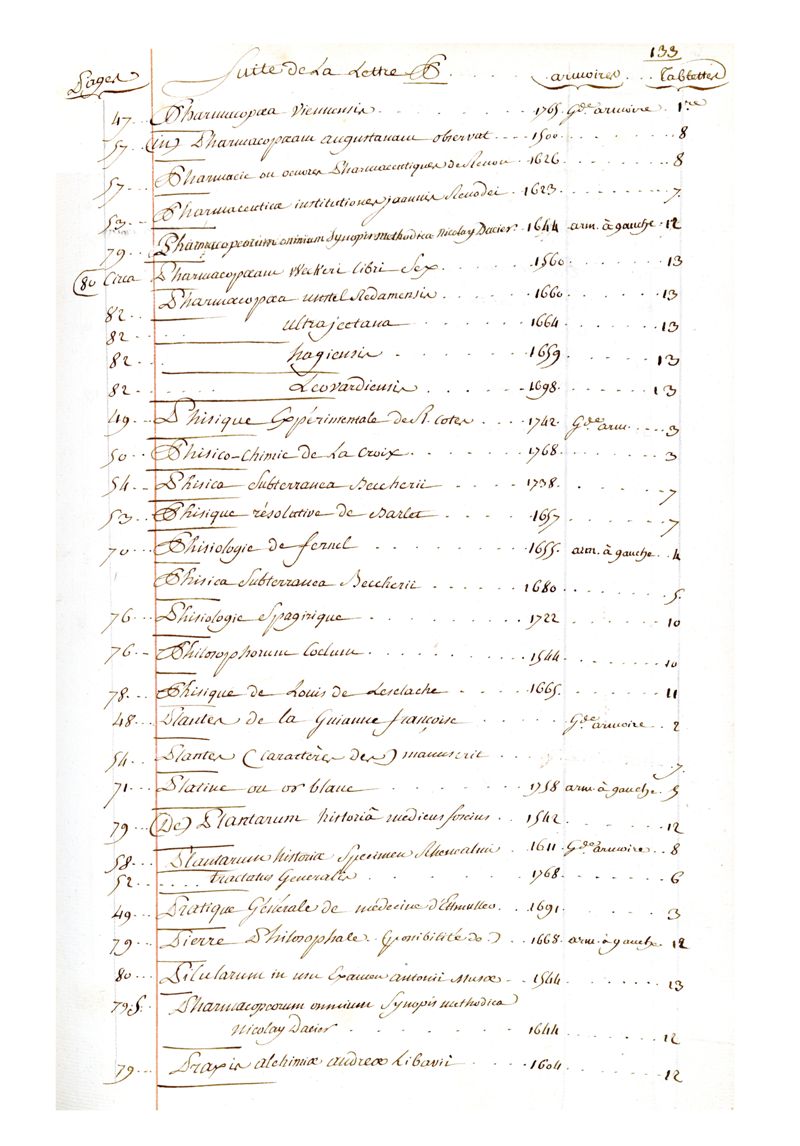 133
Pages Suite de La Lettre P armoires Tablettes
47 Pharmacopœa viennensis 1765 Gde armoire 1re
57 (in) Pharmacopœam augustanam observat 1500 8
57 Pharmacie ou oeuvres Pharmaceutiques de Renou 1626 8
53 Pharmaceuticæ institutiones joannis Renodei 1623 7
79 Pharmacopeorum omnium Synopsis methodica Nicolay Dacier 1644 arm. à gauche 12
80 Circa Pharmacopœam Weckeri libri Sex 1560 13
82 Pharmacopœa 1660 13
82 ultrajectana 1664 13
82 hagiensis 1659 13
82 Leovardiensis 1698 13
49 Phisique Expérimentale de R. Cotes 1742 Gde arm. 3
50 Phisico-Chimie de La Croix 1768 3
54 Phisica Subterranea Beccherii 1738 7
53 Phisique résolutive de Barlet 1657 7
70 Phisiologie de fernel 1655 arm. à gauche 4
Phisica Subterranea Beccherii 1680 5
76 Phisiologie Spagirique 1722 10
76 Philosophorum Coelum 1544 10
78 Phisique de Louis de Lesclache 1665 11
48 Plantes de la Guianne françoise Gde armoire 2
54 Plantes (caractères des) manuscrit 7
71 Platine ou or blanc 1758 arm. à gauche 5
79 (De) Plantarum historiâ medicus 1542 12
58 Plantarum historiæ Specimen 1611 Gde armoire 8
52 tractatus Generalis 1768 6
49 Pratique Générale de médecine d'Etmuller 1691 3
79 Pierre Philosophale (possibilité de) 1668 arm. à gauche 12
80 Pilularum in usu Examen antonii Musæ 1544 13
79. 5. Pharmacopeorum omnium Synopsis methodica
Nicolay Dacier 1644 12
79 Praxis alchimiæ andreæ Libavii 1604 12